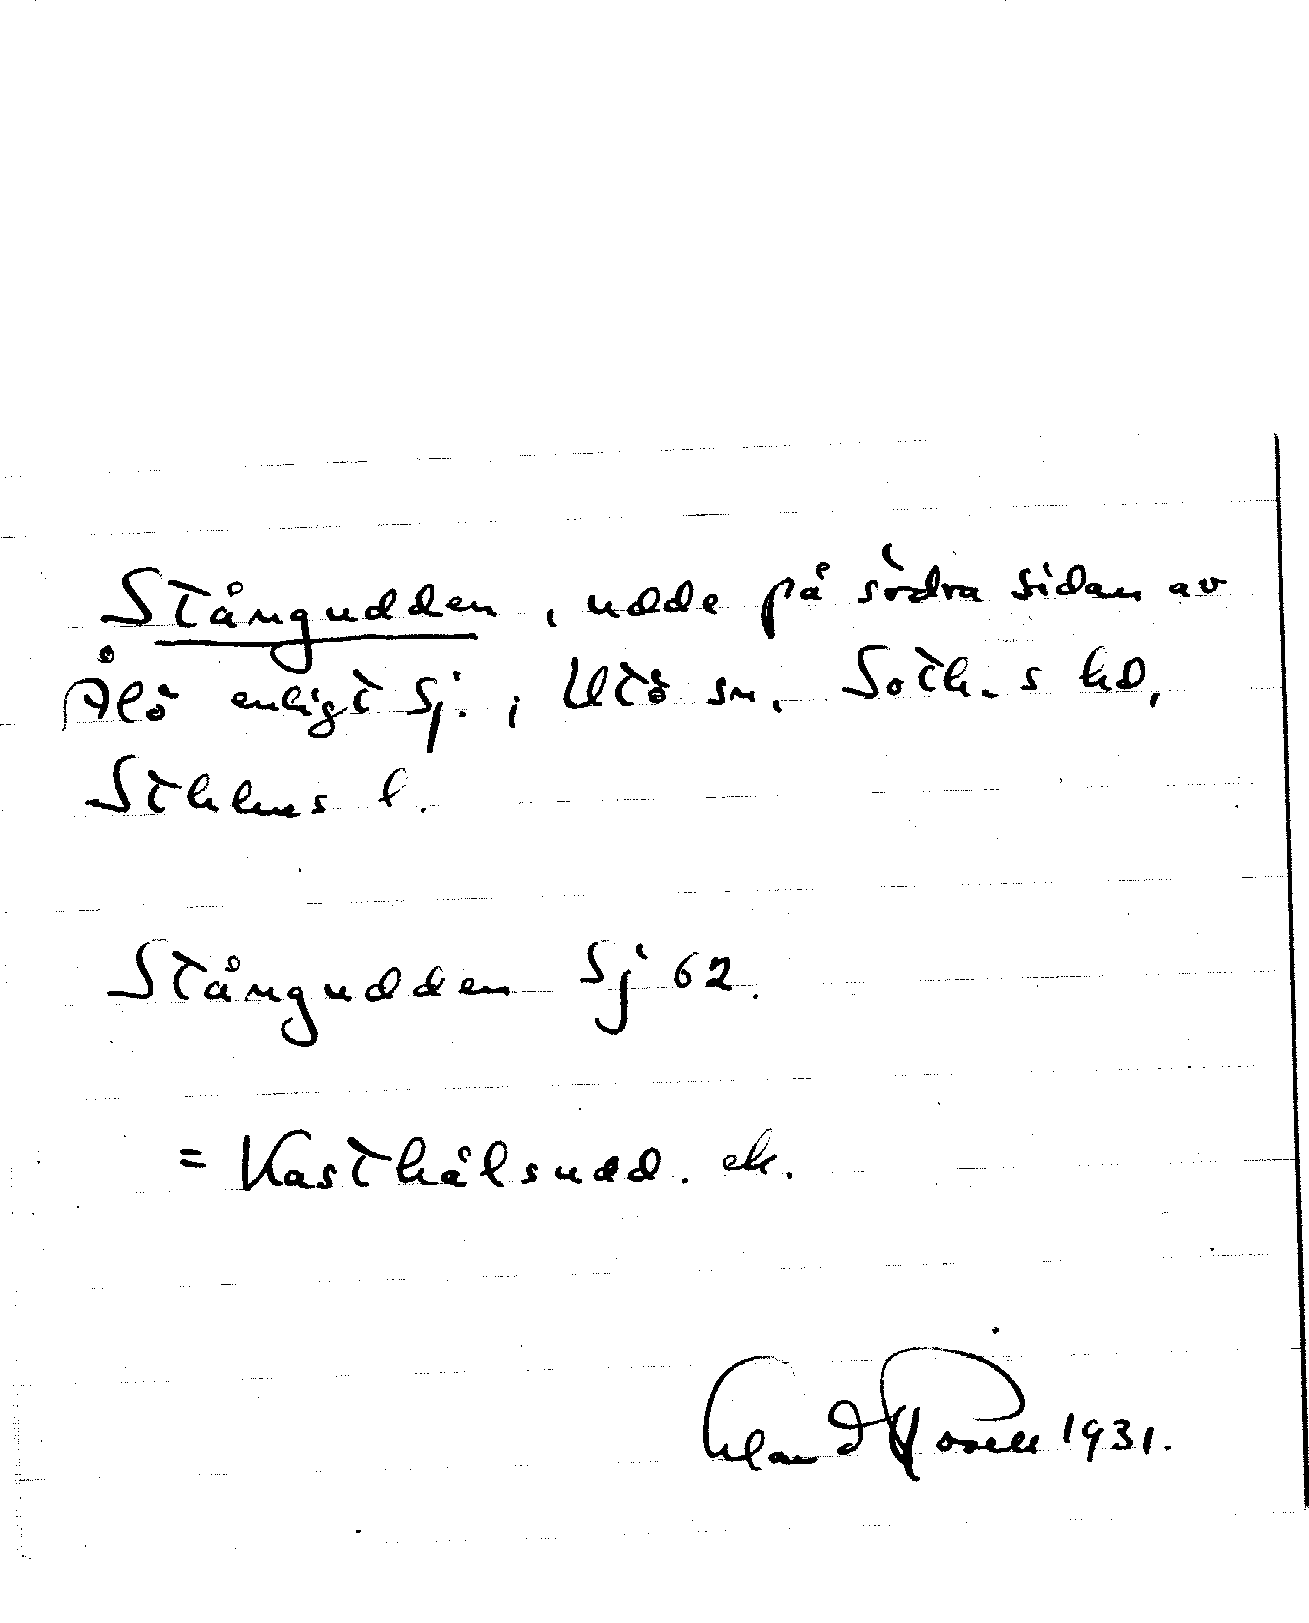 Stångudden, udde på södra sidan av
Ålö enligt Sj. i Utö sn. Soth.s hd,
Sthlms l.
Stångudden Sj 62.
= Kasthålsudd. ek.
1931.